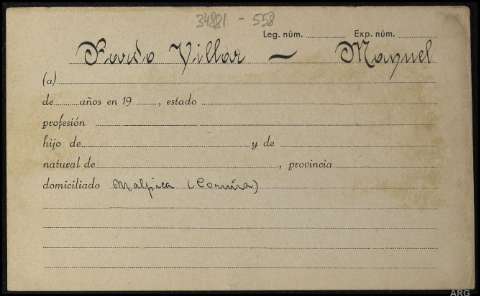 34881 - 558
Leg. núm. Exp. núm.
Pardo Villar — Manuel
(a)
de años en 19 , estado
profesión
hijo de y de
natural de , provincia
domiciliado Malpica (Coruña)
ARG